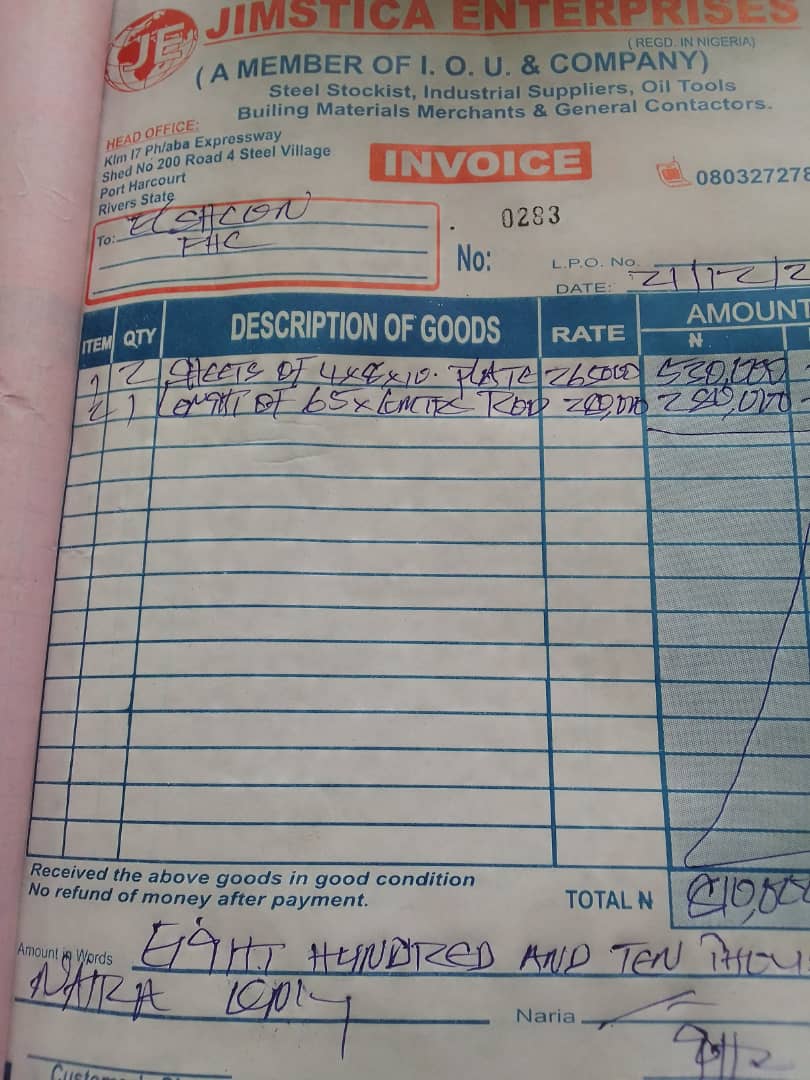 JE JIMSTICA ENTERPRISES
(REGD. IN NIGERIA)
(A MEMBER OF I. O. U. & COMPANY)
Steel Stockist, Industrial Suppliers, Oil Tools
Builing Materials Merchants & General Contactors.
HEAD OFFICE:
Klm 17 Ph/aba Expressway
Shed No 200 Road 4 Steel Village
Port Harcourt
Rivers State
INVOICE
080327278
To: ELSHCON
PHC
0283
No:
L.P.O. No.
DATE: 21/12/2
ITEM QTY DESCRIPTION OF GOODS RATE AMOUNT
₦
1 2 SHEETS OF 4x8x10. PLATE 265000 530,000
2 1 LENGTH OF 65x ROD 280,000 280,000
Received the above goods in good condition
No refund of money after payment.
TOTAL ₦ 810,000
Amount in Words EIGHT HUNDRED AND TEN THOU
NAIRA ONLY
Naria